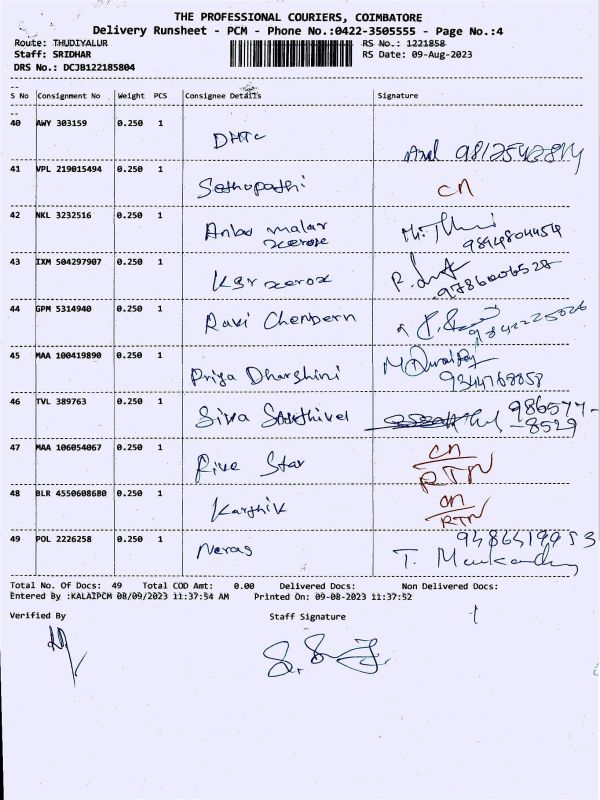 THE PROFESSIONAL COURIERS, COIMBATORE
Delivery Runsheet - PCM - Phone No.:0422-3505555 - Page No.:4
Route: THUDIYALUR RS No.: 1221858
Staff: SRIDHAR RS Date: 09-Aug-2023
DRS No.: DCJB122185804
S No Consignment No Weight PCS Consignee Details Signature
40 AWY 303159 0.250 1 DHTC
41 VPL 219015494 0.250 1 Sathopathi CN
42 NKL 3232516 0.250 1 Anbu malar
xerox 9894804454
43 IXM 504297907 0.250 1 KGR xerox
9786006528
44 GPM 5314940 0.250 1 Ravi Chenbern
45 MAA 100419890 0.250 1 Priya Dharshini
9344768858
46 TVL 389763 0.250 1 Siva Sakthivel 986577-
-8529
47 MAA 106054067 0.250 1 Five Star CN
RTN
48 BLR 4550608680 0.250 1 Karthik CN
RTN
49 POL 2226258 0.250 1 Neras T.
Total No. Of Docs: 49 Total COD Amt: 0.00 Delivered Docs: Non Delivered Docs:
Entered By :KALAIPCM 08/09/2023 11:37:54 AM Printed On: 09-08-2023 11:37:52
Verified By Staff Signature